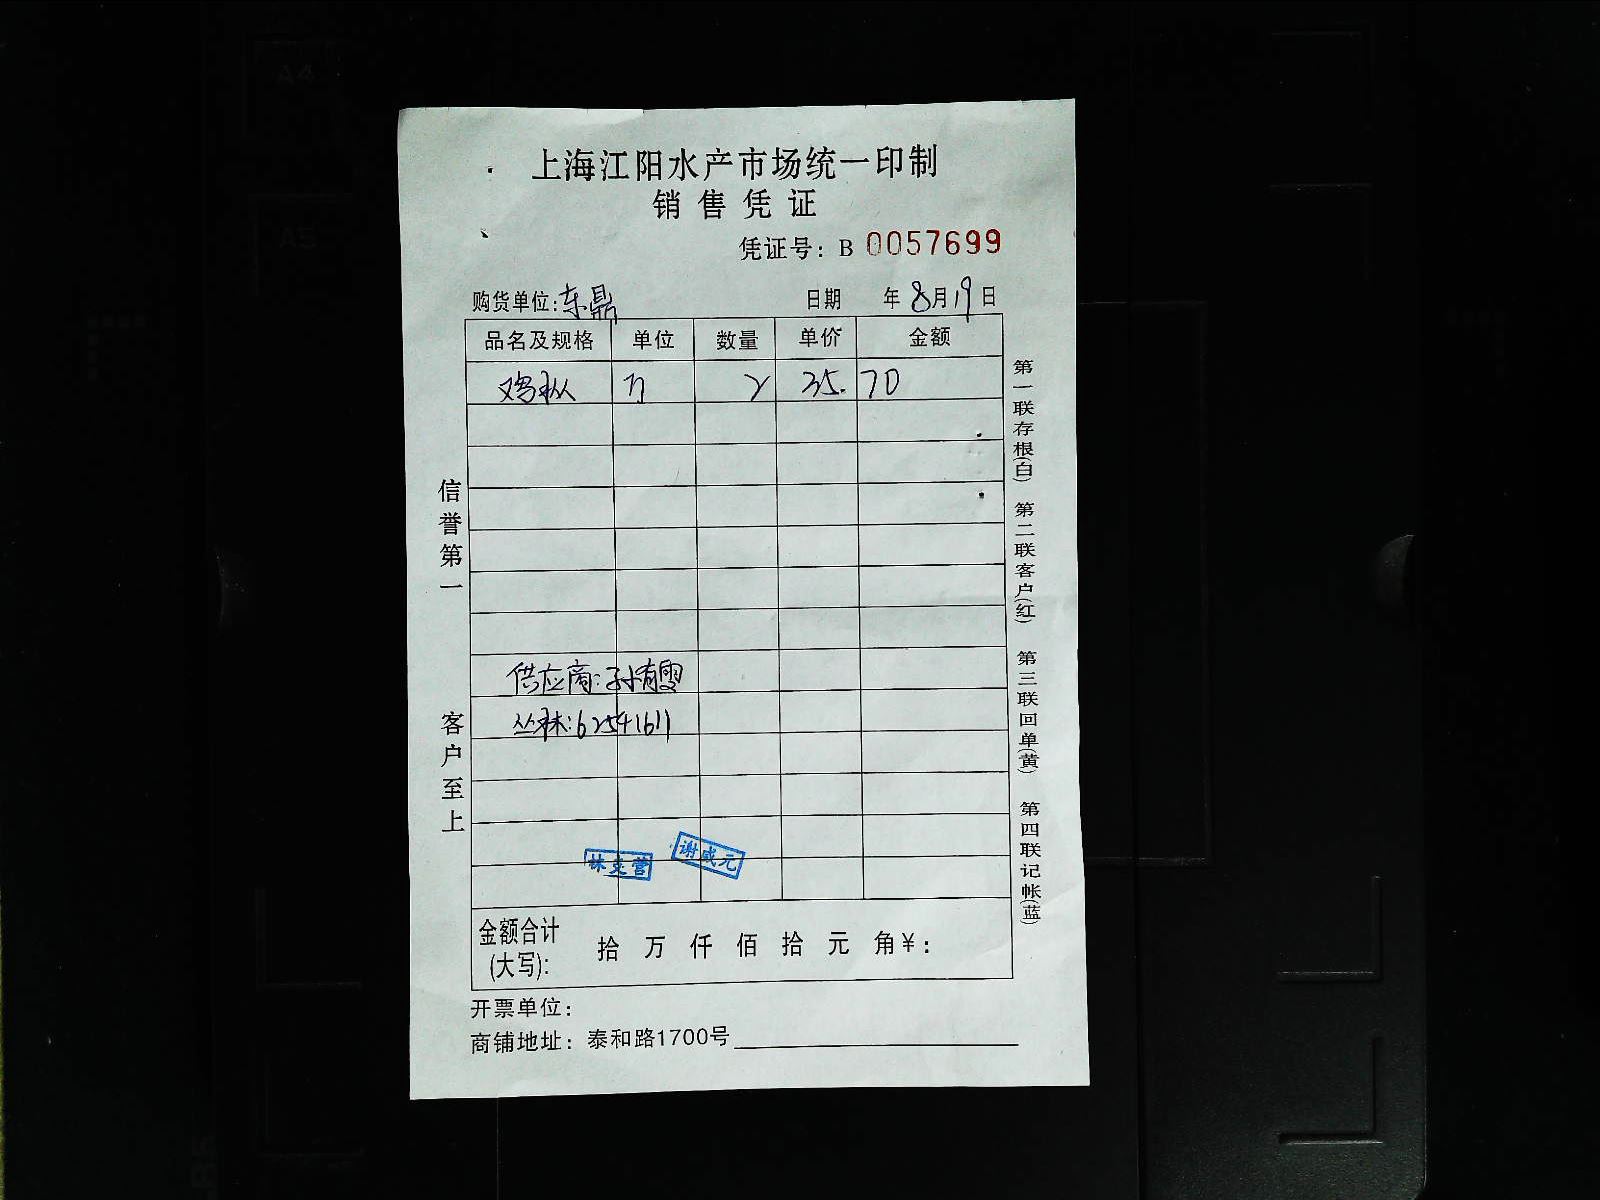 上海江阳水产市场统一印制
销售凭证
凭证号：B 0057699
购货单位:东鼎 日期 年8月19日
品名及规格 单位 数量 单价 金额
鸡枞 2 35. 70
供应商:孙有雯
丛林:62541611
林 营 谢成元
金额合计(大写): 拾 万 仟 佰 拾 元 角¥：
开票单位：
商铺地址：泰和路1700号
信誉第一 客户至上
第一联存根(白) 第二联客户(红) 第三联回单(黄) 第四联记帐(蓝)
A4
A5